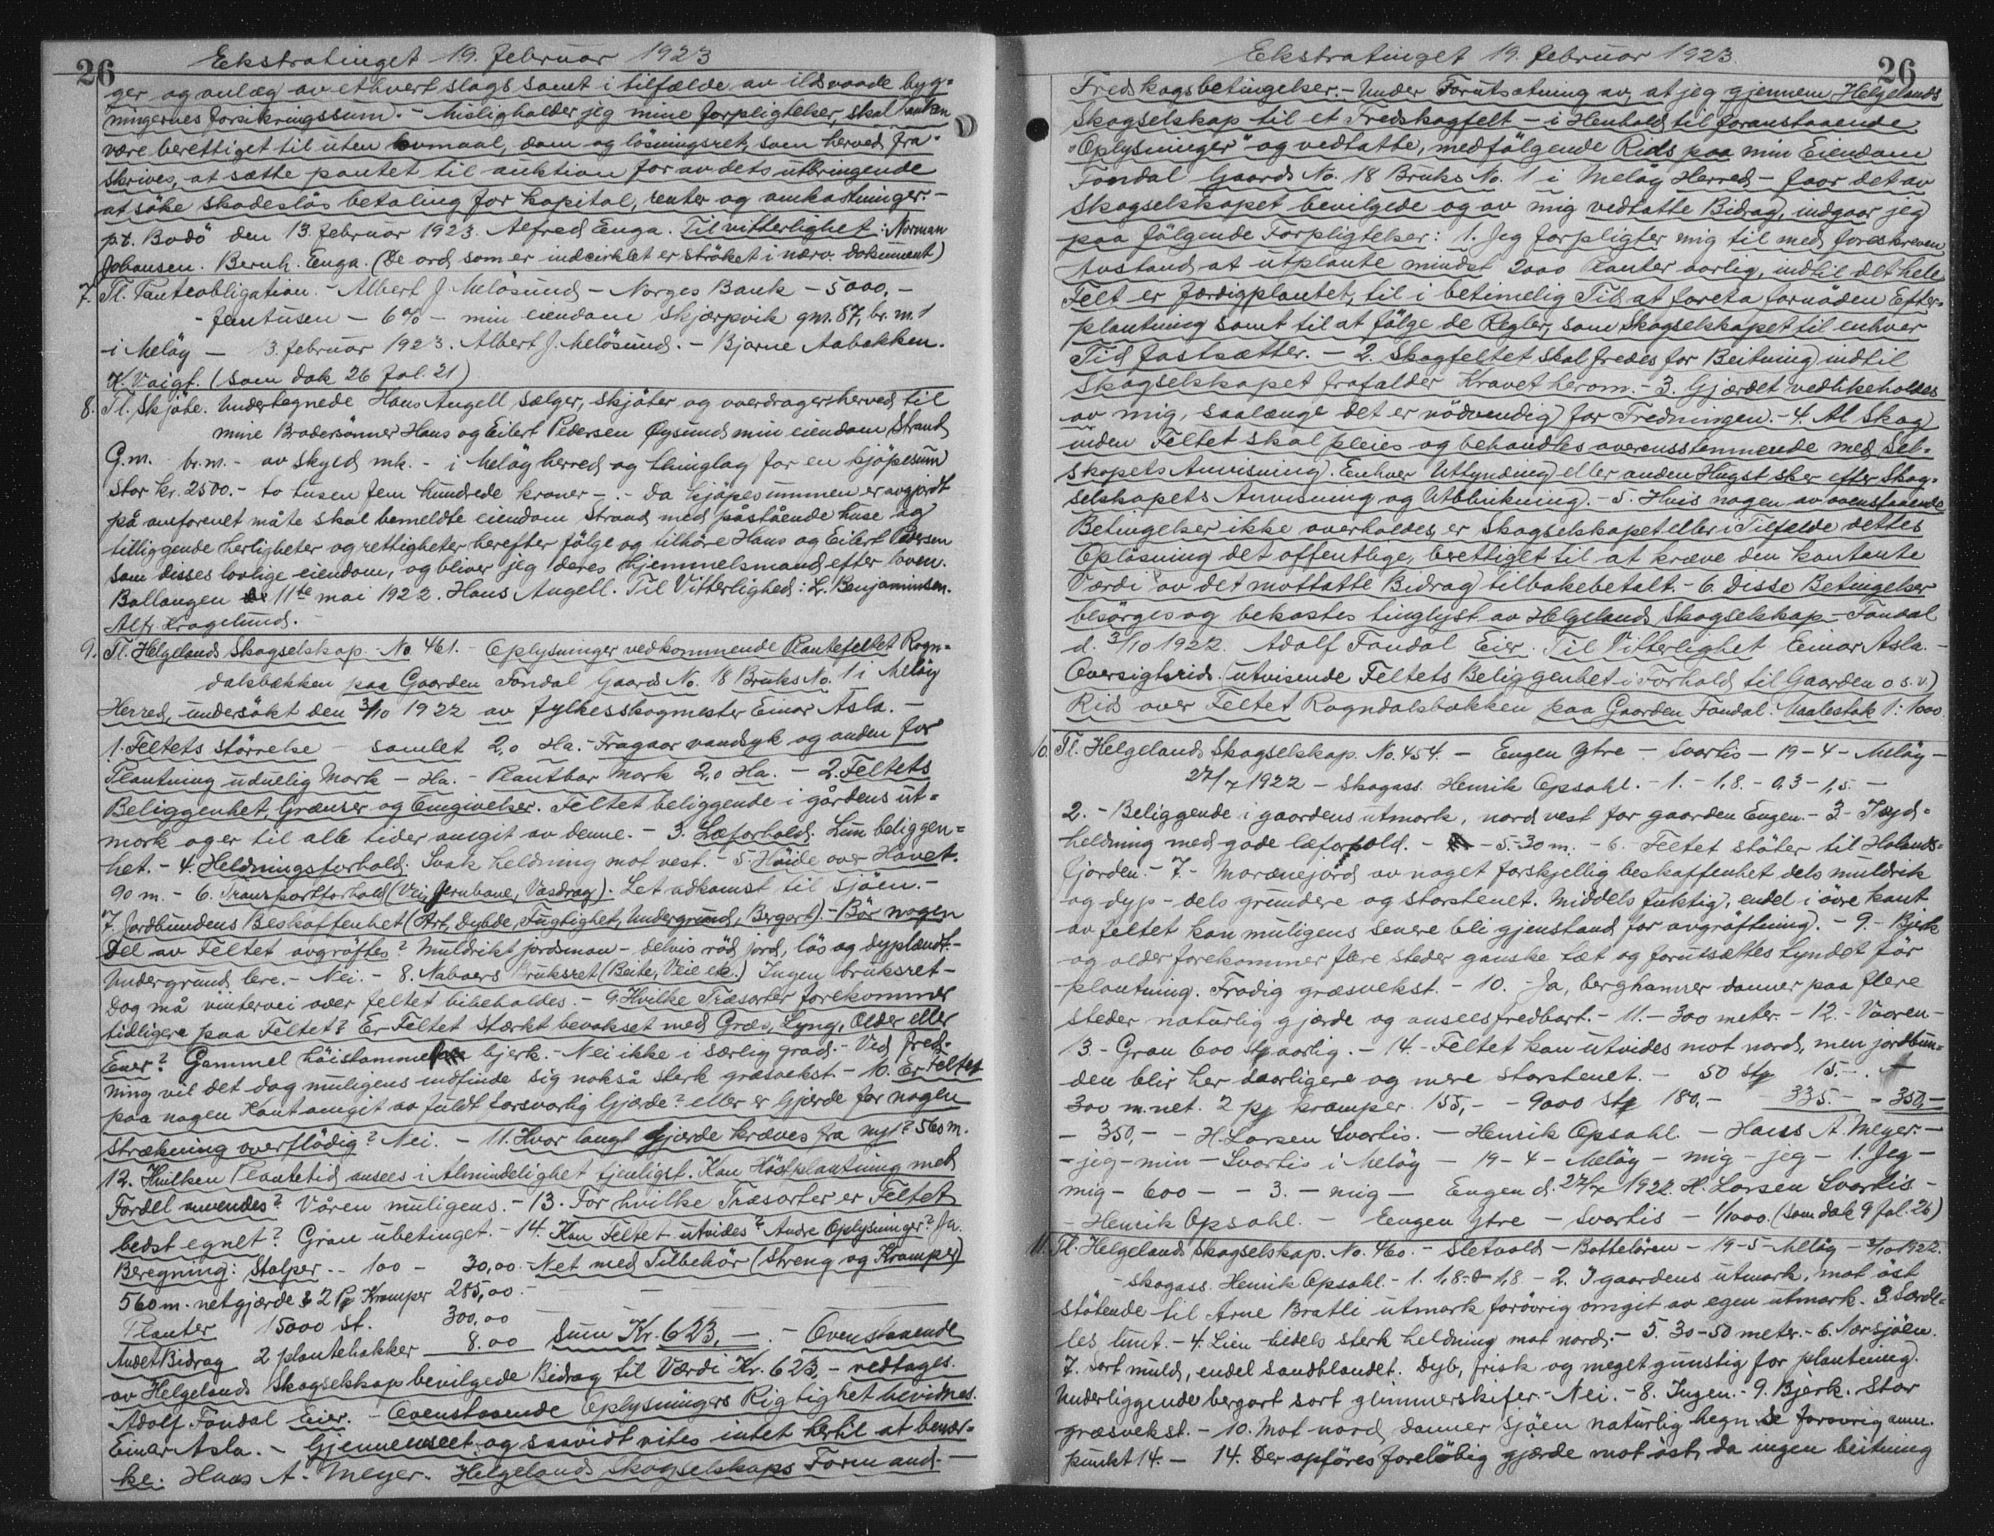 26
Ekstratinget 19. februar 1923
ger og anlæg av ethvert slags samt i tilfælde av ildsvaade byg=
ningernes forsikringssum. - Misligholder jeg mine forpligtelser, skal banken
være berettiget til uten lovmaal, dom og løsningsret, som herved fra=
skrives, at sætte pantet til auktion for av dets utbringende
at søke skadesløs betaling for kapital, renter og omkostninger. -
p.t. Bodö den 13 februar 1923. Alfred Enga. Til vitterlighet: Norman
Johansen. Bernh. Enga. (De ord som er indcirklet er ströket i nærv. dokument)
7. Tl. Panteobligation. - Albert J. Melösund - Norges Bank - 5000,-
- femtusen - 6% - min eiendom Skjærpvik gnr. 87, br. nr. 1
- i Melöy - 3. februar 1923. Albert J. Melösund. - Bjarne Aabakken.
K. Vaigt. (Som dok 26 fol. 21)
8. Tl. Skjöte. Undertegnede Hans Angell sælger, skjöter og overdrager herved til
mine Brodersönner Hans og Eilert Pedersen Öysund min eiendom Strand
G.nr. br.nr. - av skyld mk. - i Melöy herred og thinglag for en kjöpesum
stor kr. 2500.- to tusen fem hundrede kroner - . - Da kjöpesummen er avgjordt
på omforenet måte skal bemeldte eiendom Strand med påstående huse og
tilliggende herligheter og rettigheter herefter fölge og tilhöre Hans og Eilert Pedersen
som disses lovlige eiendom, og bliver jeg deres hjemmelsmand efter loven.
Ballangen 11te mai 1922. Hans Angell. Til Vitterlighed: L. Benjaminsen.
Alfr. Kragelund. -
9. Tl. Helgelands Skogselskap. No 461. - Oplysninger vedkommende Plantefeltet Rogn=
dalsbækken paa Gaarden Fondal Gaards No. 18 Bruks No. 1 i Melöy
Herred, undersökt den 3/10 1922 av fylkesskogmester Einar Asla. -
1. Feltets störrelse - samlet 2,0 Ha. - Fragaar vandsyk og anden for
Plantning uduelig Mark - Ha. - Plantbar Mark 2,0 Ha. - 2. Feltets
Beliggenhet, Grænser og Omgivelser. Feltet beliggende i gårdens ut=
mark og er til alle tider omgit av denne. - 3. Læforhold. Lun beliggen=
het. - 4. Heldningsforhold. Svak heldning mot vest. - 5 Höide over Havet.
90 m. - 6. Transportforhold (Vei, Jernbane, Vasdrag). Let adkomst til sjöen. -
7. Jordbundens Beskaffenhet (Art, Dybde, Fugtighet, Undergrund, Bergart). - Bör nogen
Del av Feltet avgröftes? Muldrikt jordsmon - delvis röd jord, lös og dyplændt. -
Undergrund lere. - Nei. - 8. Naboers Bruksret (Beite, Veie etc.) Ingen bruksret -
Dog må vintervei over feltet bibeholdes. - 9. Hvilke Træsorter forekommer
tidligere paa Feltet? Er Feltet stærkt bevokset med Græs, Lyng, Older eller
Ener? Gammel höistammet bjerk. - Nei ikke i særlig grad. - Ved fred=
ning vil det dog muligens indfinde sig nokså sterk græsvekst. - 10. Er Feltet
paa nogen Kant omgit av fuldt forsvarlig Gjærde? eller er Gjærde for nogen
Strækning overflödig? Nei. - 11. Hvor langt Gjærde kræves fra nyt? 560 m.
12. Hvilken Plantetid ansees i Almindelighet tjenligst. Kan Höstplantning med
Fordel anvendes? Våren muligens. - 13. For hvilke Træsorter er Feltet
bedst egnet? Gran ubetinget. - 14. Kan Feltet utvides? Andre Oplysninger? Ja.
Beregning: Stolper - - 100 - 30,00 - Net med Tilbehör (Streng og Kramper)
560 m. netgjærde & 2 Pg Kramper 285,00 -
Planter 15000 st. 300,00
Andet Bidrag 2 plantehakker 8.00 Sum Kr. 623,- . - Ovenstaaende
av Helgelands Skogselskap bevilgede Bidrag til Værdi Kr. 623, - vedtages.
Adolf Fondal Eier. - Ovenstaaende Oplysningers Rigtighet bevidnes.
Einar Asla. - Gjennemseet og saavidt vites intet hertil at bemær=
ke. Hans A. Meyer. Helgelands Skogselskaps Formand. -
26
Ekstratinget 19. februar 1923.
Fredskogsbetingelser. - Under Forutsætning av, at jeg gjennem Helgelands
Skogselskap til et Fredskogfelt - i Henhold til foranstaaende
"Oplysninger" og vedtatte, medfölgende Rids paa min Eiendom
Fondal Gaards No. 18 Bruks No. 1 i Melöy Herred - faar det av
Skogselskapet bevilgede og av mig vedtatte Bidrag, indgaar jeg
paa fölgende Forpligtelser: 1. Jeg forpligter mig til med foreskreven
Avstand at utplante mindst 2000 Planter aarlig, indtil det hele
Felt er færdigplantet, til i betimelig Tid at foreta fornöden Efter=
plantning samt til at fölge de Regler, som Skogselskapet til enhver
Tid fastsætter. - 2. Skogfeltet skal fredes for Beitning indtil
Skogselskapet frafalder Kravet herom. - 3. Gjærdet vedlikeholdes
av mig, saalænge det er nödvendig for Fredningen. - 4. Al Skog
inden Feltet skal pleies og behandles overensstemmende med Sel=
skapets Anvisning. Enhver Uttynding eller anden Hugst sker efter Skog=
selskapets Anvisning og Utblinkning. - 5. Hvis nogen av ovenstaaende
Betingelser ikke overholdes, er Skogselskapet eller i Tilfælde dettes
Oplösning det offentlige, berettiget til at kræve den kontante
Værdi av det mottatte Bidrag tilbakebetalt. - 6. Disse Betingelser
besörges og bekostes tinglyst av Helgelands Skogselskap - Fondal
d. 3/10 1922. Adolf Fondal Eier. Til Vitterlighet Einar Asla. -
Oversigtsrids utvisende Feltets Beliggenhet i Forhold til Gaarden o.s.v.)
Rids over Feltet Rogndalsbækken paa Gaarden Fondal. Maalestok 1:1000
10. Tl. Helgelands Skogselskap. No. 454. - Engen Ytre - Svartis - 19 - 4 - Melöy -
27/7 1922 - Skogass. Henrik Opsahl. - 1. - 1,8. - 0,3 - 1,5 -
2. - Beliggende i gaardens utmark, nord vest for gaarden Engen. - 3 - Jevn
heldning med gode læforhold. - - 5 - 30 m. - 6. Feltet stöter til Holands=
fjorden. - 7 - Morænejord av noget forskjellig beskaffenhet dels muldrik
og dyp - dels grundere og storstenet. Middels fuktig, endel i övre kant
av feltet kan muligens senere bli gjenstand for avgröftning. - 9. - Bjerk
og older forekommer flere steder ganske tæt og forutsættes tyndet för
plantning. Frodig græsvekst. - 10. - Ja, berghamrer danner paa flere
steder naturlig gjerde og ansees fredbart. - 11. - 300 meter. - 12. - Vaaren -
13. - Gran 600 stg aarlig. - 14. - Feltet kan utvides mot nord, men jordbun=
den blir her daarligere og mere storstenet. - 50 stg 15,- .
300 m. net. 2 pg kramper. 155,- - 9000 stg 180,- 335.- - 350,-
- 350,- - H. Larsen Svartis. - Henrik Opsahl. - Hans A. Meyer. -
- jeg - min - Svartis i Melöy - 19 - 4 - Melöy - mig - jeg - 1. Jeg -
mig - 600 - - 3. - mig - Engen d. 27/7 1922. H. Larsen Svartis. -
- Henrik Opsahl. - Engen Ytre - Svartis - 1/1000. (Som dok 9 fol. 26)
11. Tl. Helgelands Skogselskap. No. 460. - Sletvold - Bottelören - 19 - 5 - Melöy - 3/10 1922.
- Skogass. Henrik Opsahl. - 1. 1,8 - 0 - 1,8 - 2. I gaardens utmark, mot öst
stötende til Arne Bratli utmark forövrig omgit av egen utmark. 3. Særde=
les lunt. - 4. Lien tildels sterk heldning mot nord. - 5. 30-50 meter. - 6. Nær sjöen.
7. Sort muld, endel sandblandet. Dyb, frisk og meget gunstig for plantning.
Underliggende bergart sort glimmerskifer. - Nei. - 8. Ingen. - 9. Bjerk. Stor
græsvekst. - 10. Mot nord danner sjöen naturlig hegn. Se forövrig anm.
punkt 14. - 14. Der opföres foreløbig gjærde mot öst, da ingen beitning